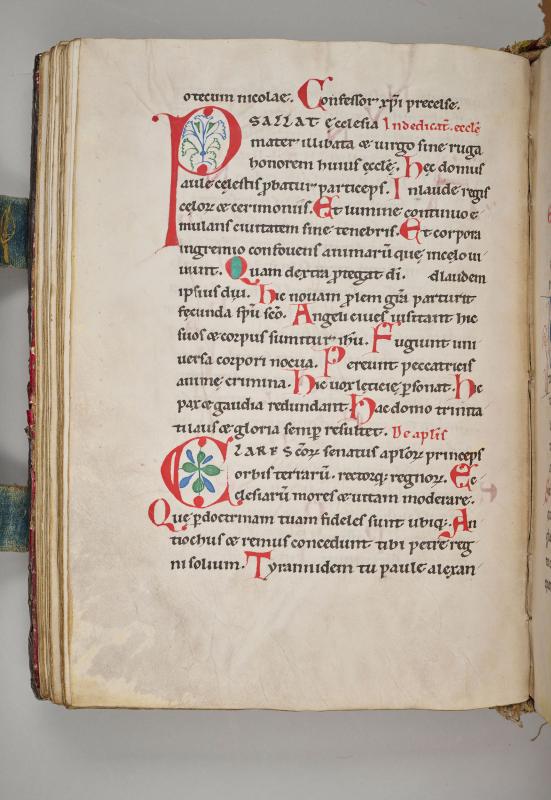 otecum nicolae. Confessor xp̄i precelse.
PSALLAT ecclesia In dedicat̄. eccle
mater illibata & uirgo sine ruga
honorem huius eccle. Hęc domus
aulę celestis p̱batur particeps. In laude regis
celoꝝ & cerimoniis. Et lumine continuo e
mulans ciuitatem sine tenebris. Et corpora
in gremio confouens animarū quę in celo ui
uunt. Quam dextra p̱tegat dī. ad laudem
ipsius diu. Hic nouam p̱lem gr̄a parturit
fęcunda sp̄u sc̄o. Angeli ciues uisitant hic
suos & corpus sumitur ih̄u. Fugiunt uni
uersa corpori nocua. Pereunt peccatricis
animę crimina. Hic uox lęticię p̱sonat. Hic
pax & gaudia redundant. Hac domo trinita
ti laus & gloria semp̱ resultet. De apl̄is
CLARE Sc̄oꝝ senatus apl̄oꝝ princeps
orbis terrarū. rectorq; regnoꝝ. Ec
clesiarū mores & uitam moderare.
Quę p̱ doctrinam tuam fideles sunt ubiq;. An
tiochus & remus concedunt tibi petre reg
ni solium. Tyrannidem tu paule alexan